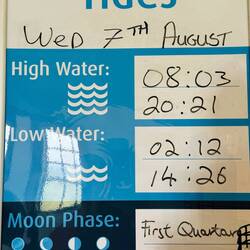 TIDES
WED 7TH AUGUST
High Water: 08:03
20:21
Low Water: 02:12
14:26
Moon Phase: First Quarter